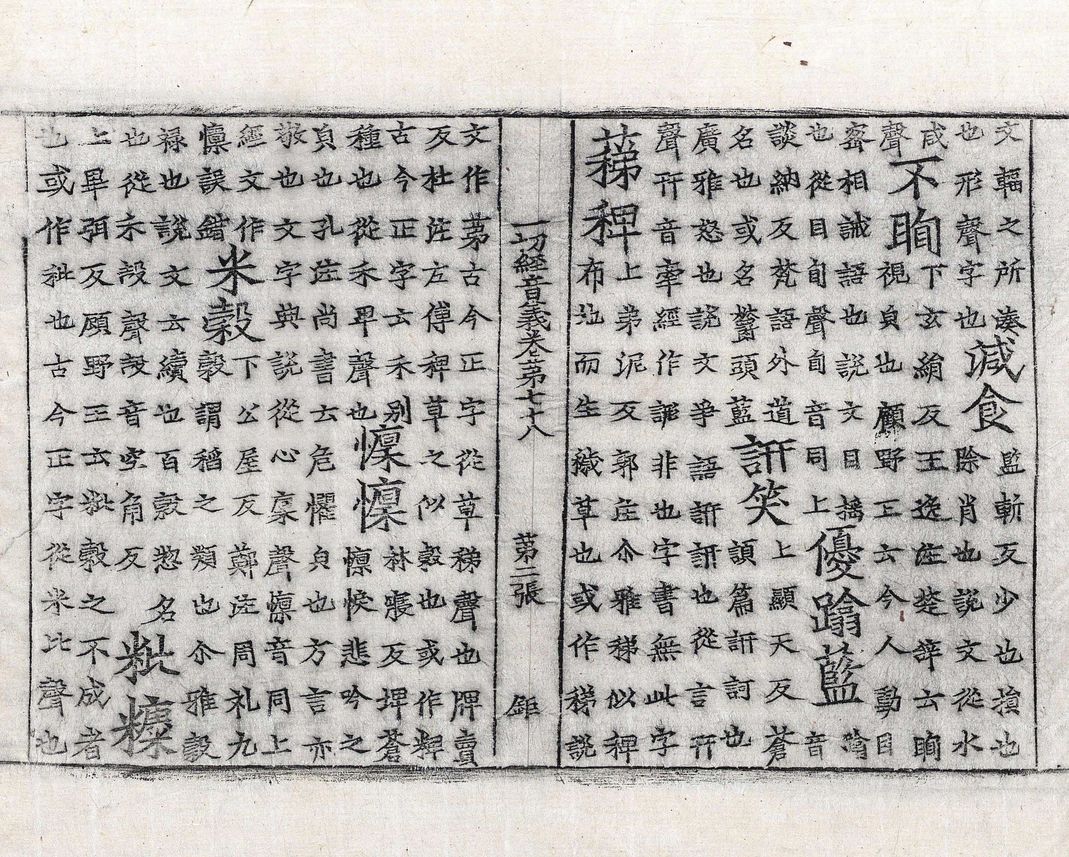 文輻之所湊
也形聲字也
減食
監斬反少也損也
除省也說文從水
咸
聲
不眴
下玄絹反王逸注楚辭云眴
視皃也顧野王云今人動目
密相誡語也說文目搖
也從目旬聲旬音同上
優蹹藍
蹹
音
談納反梵語外道
名也或名鬱頭藍
訮笑
上顯天反蒼
頡篇訮訶也
廣雅怒也說文爭語訮訮也從言幵
聲幵音牽經作非也字書無此字
稊稗
上弟泥反郭注尒雅稊似稗
布地而生穢草也或作稊說
一切經音義卷苐七十八 苐二張 鉅
文作苐古今正字從草稊聲也牌賣
反杜注左傳稗草之似穀也或作粺
古今正字云禾別
種也從禾卑聲也
懍懍
林寑反埤蒼
懍悷悲吟之
皃也孔注尚書云危懼皃也方言亦
敬也文字典說從心稟聲懍音同上
經文作
懍誤錯
米穀
下公屋反鄭注周礼九
穀謂稻之類也尒雅穀
祿也說文云續也百穀惣名
也從禾殼聲殼音空角反
粃糠
上畢弭反顧野王云粃穀之不成者
也或作秕也古今正字從米比聲也